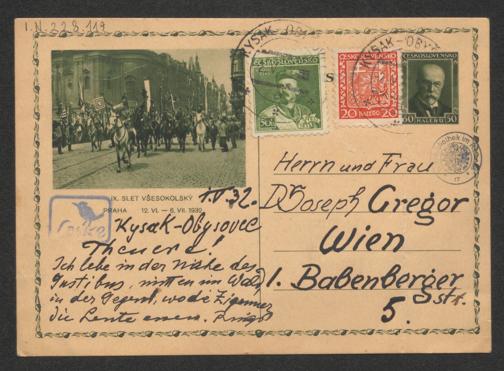 I.N. 228.119
KYSAK-OBY
ČESKOSLOVENSKO
50
ČESKOSLOVENSKO
20 HALÉŘŮ 20
ČESKOSLOVENSKO
50 HALÉŘŮ 50
S
IX. SLET VŠESOKOLSKÝ
PRAHA 12. VI. – 6. VII. 1930
1.V.32.
Kysak-Obysovec
Theuere!
Ich lebe in der Nähe des
Gustibus, mitten im Wald,
in der Gegend, wo die Zigeuner
die Leute
Herrn und Frau
Dr Joseph Gregor
Wien
1. Babenberger
str.
5.